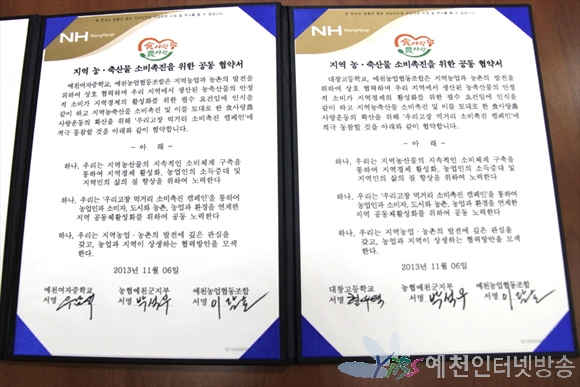 NH NongHyup
食사랑
農사랑
지역 농·축산물 소비촉진을 위한 공동 협약서
예천여자중학교, 예천농업협동조합은 지역농업과 농촌의 발전을
위하여 상호 협력하며 우리 지역에서 생산된 농축산물의 안정
적 소비가 지역경제의 활성화를 위한 필수 요건임에 인식을
같이 하고 지역농축산물 소비촉진과 이를 토대로 한 食사랑農
사랑운동의 확산을 위해 '우리고장 먹거리 소비촉진 캠페인'에
적극 동참할 것을 아래와 같이 협약합니다.
- 아 래 -
하나, 우리는 지역농산물의 지속적인 소비체계 구축을
통하여 지역경제 활성화, 농업인의 소득증대 및
지역민의 삶의 질 향상을 위하여 노력한다
하나, 우리는 '우리고장 먹거리 소비촉진 캠페인'을 통하여
농업인과 소비자, 도시와 농촌, 농업과 환경을 연계한
지역 공동체활성화를 위하여 공동 노력한다
하나, 우리는 지역농업·농촌의 발전에 깊은 관심을
갖고, 농업과 지역이 상생하는 협력방안을 모색
한다.
2013년 11월 06일
예천여자중학교 농협예천군지부 예천농업협동조합
서명 서명 박석우 서명
NH NongHyup
食사랑
農사랑
지역 농·축산물 소비촉진을 위한 공동 협약서
대창고등학교, 예천농업협동조합은 지역농업과 농촌의 발전을
위하여 상호 협력하며 우리 지역에서 생산된 농축산물의 안정
적 소비가 지역경제의 활성화를 위한 필수 요건임에 인식을
같이 하고 지역농축산물 소비촉진과 이를 토대로 한 食사랑農
사랑운동의 확산을 위해 '우리고장 먹거리 소비촉진 캠페인'에
적극 동참할 것을 아래와 같이 협약합니다.
- 아 래 -
하나, 우리는 지역농산물의 지속적인 소비체계 구축을
통하여 지역경제 활성화, 농업인의 소득증대 및
지역민의 삶의 질 향상을 위하여 노력한다
하나, 우리는 '우리고장 먹거리 소비촉진 캠페인'을 통하여
농업인과 소비자, 도시와 농촌, 농업과 환경을 연계한
지역 공동체활성화를 위하여 공동 노력한다
하나, 우리는 지역농업·농촌의 발전에 깊은 관심을
갖고, 농업과 지역이 상생하는 협력방안을 모색
한다.
2013년 11월 06일
대창고등학교 농협예천군지부 예천농업협동조합
서명 서명 박석우 서명
예천인터넷방송